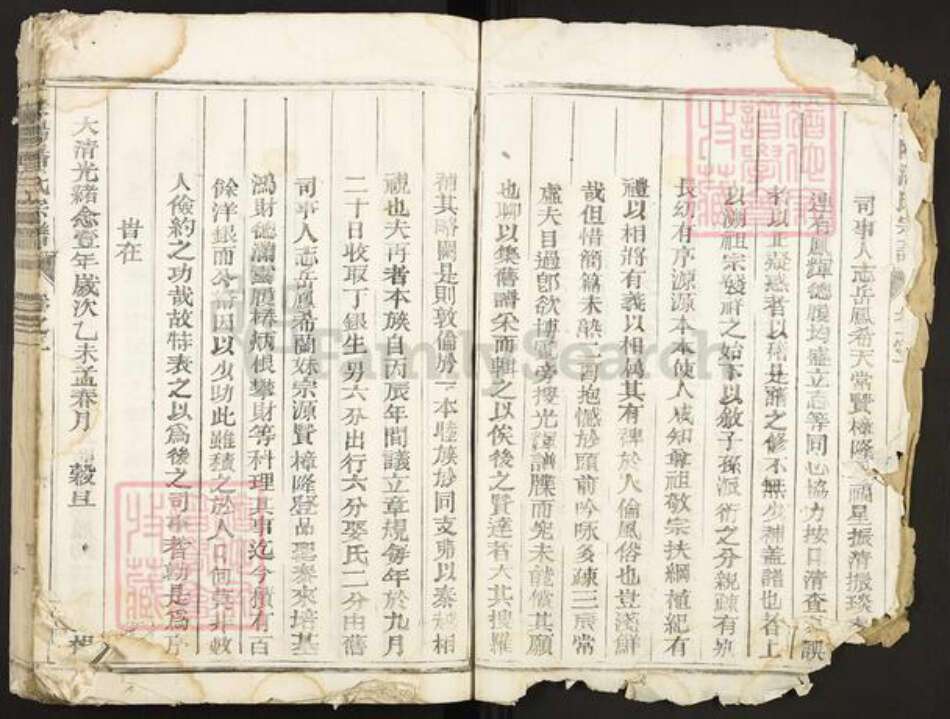 司事人志岳鳳希天常賢樟隆 福星振清振琰
連若鳳輝德履均盛立志等同心協力按日清查 誤
者以正疑惑者以 是譜之修不無少補蓋譜也者上
以溯祖宗發祥之始下以敘子孫派衍之分親疎有別
長幼有序源源本本使人咸知尊祖敬宗扶綱植紀有
禮以相將有義以相 其有裨於人倫風俗也豈淺鮮
哉但惜簡篇未 二 抱憾於頭前吟咏多疎三辰常
虛夫目過卽欲博覽旁搜光 譜牒而究未能償其願
也聊以集舊譜 而輯之以俟後之賢達者大其搜羅
補其略闕是則敦倫於一本睦族於同支弗以秦越相
視也夫再者本族自丙辰年間議立章規每年於九月
二十日收取丁銀生男六分出行六分娶氏二分由舊
司事人志岳鳳希蘭妹宗源賢樟隆登品聖泰來培基
鴻財德滿 履椿炳根攀財等科理其事迄今積有百
餘洋銀而今 因以少助此雖積之於人口何莫非數
人儉約之功哉故特表之以爲後之司事者勸是爲序
旹在
大清光緒念壹年歲次乙未孟春月 穀旦
氏宗譜
譜學
收藏
FamilySearch